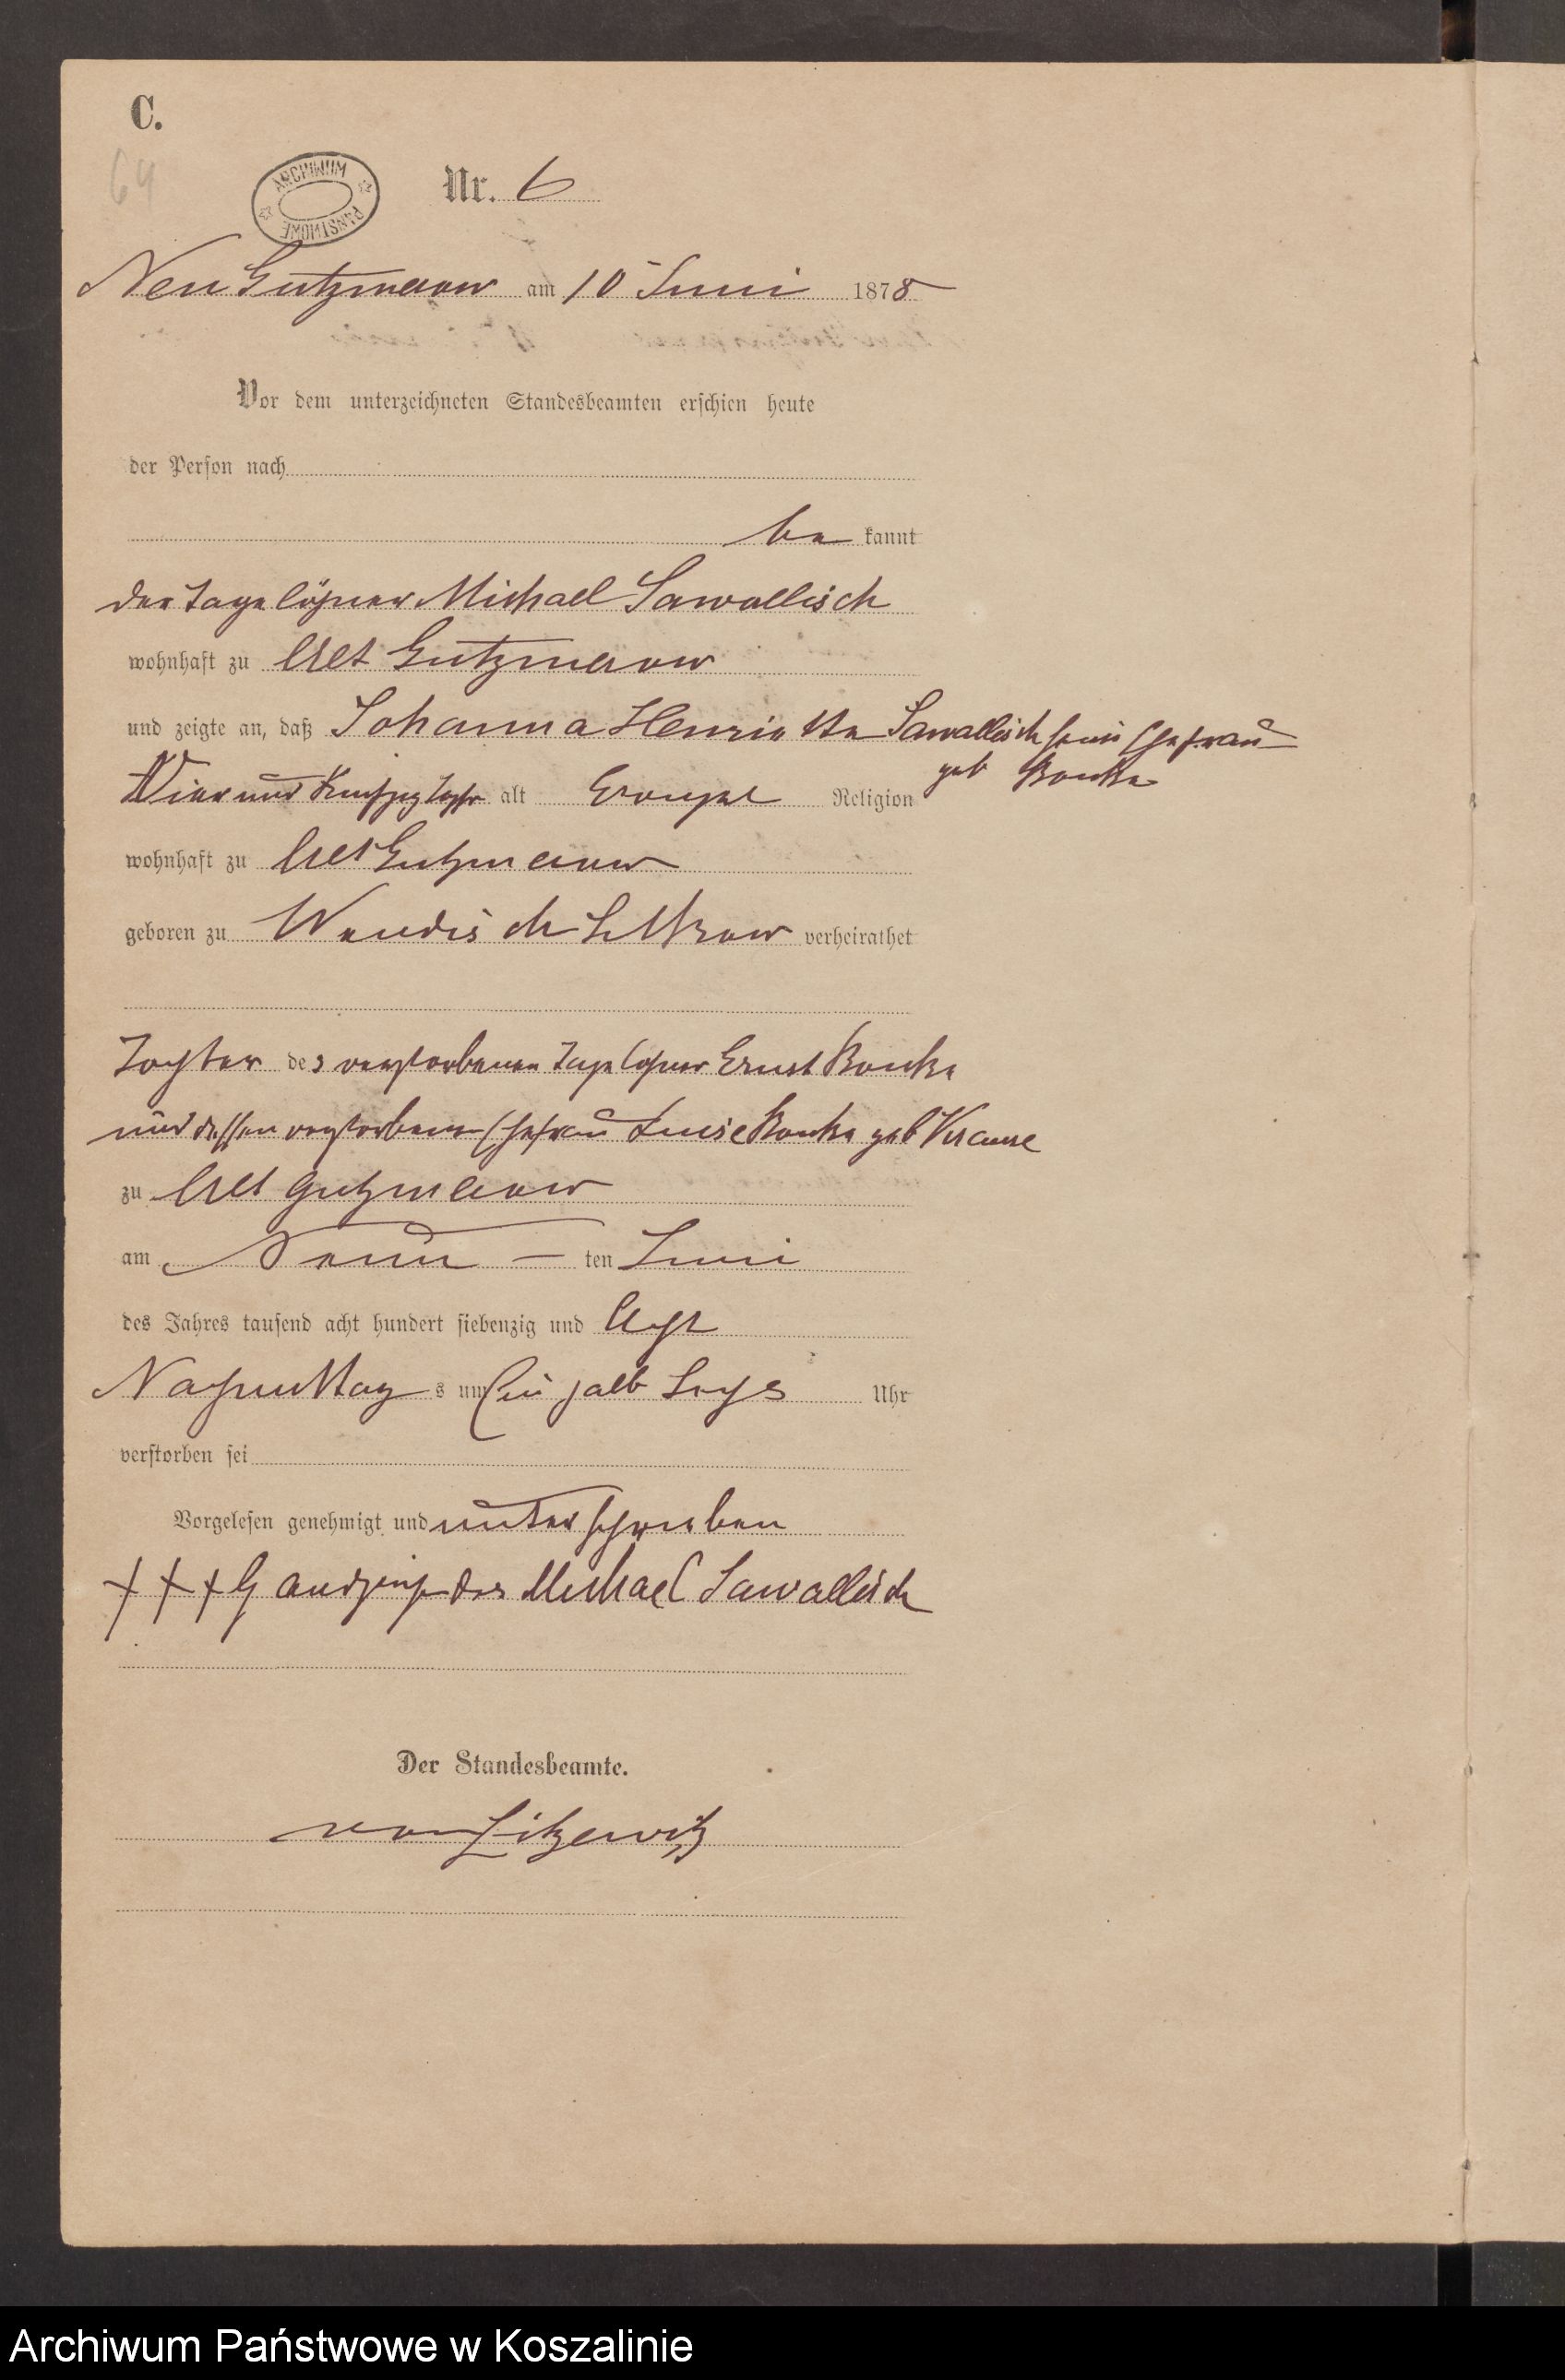 C.
64
ARCHIWUM PAŃSTWOWE
Nr. 6
Neu Gutzmerow am 10 Juni 1878
Vor dem unterzeichneten Standesbeamten erschien heute
der Person nach
be kannt
der Tagelöhner Michael Sawallisch
wohnhaft zu Alt Gutzmerow
und zeigte an, daß Johanna Henriette Sawallisch seine Ehefrau
geb
Vier und Funfzig Jahr alt Evangel Religion
wohnhaft zu Alt Gutzmerow
geboren zu Wendisch verheirathet
Tochter des verstorbenen Tagelohner Ernst
und dessen verstorbenen Ehefrau Luise geb Krause
zu Alt Gutzmerow
am Neun – ten Juni
des Jahres tausend acht hundert siebenzig und Acht
Nachmittag s um Ein halb Sechs Uhr
verstorben sei
Vorgelesen genehmigt und unterschrieben
+ + + Handzeichen des Michael Sawallisch
Der Standesbeamte.
von Zitzewitz
Archiwum Państwowe w Koszalinie